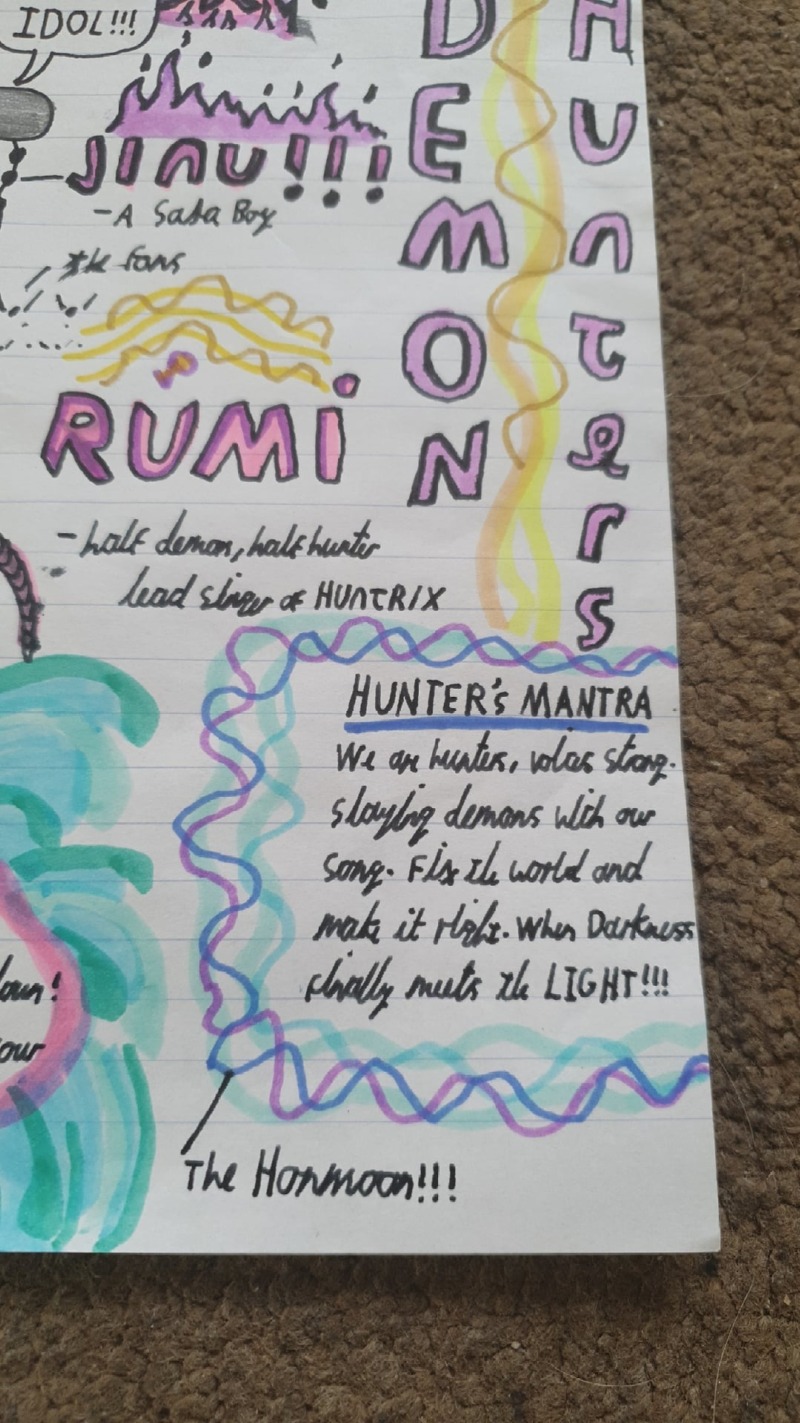 IDOL!!!
JINU!!!
-A SaJa Boy
the fans
RUMi
-half demon, half hunter
lead singer of HUNTRIX
DEMON
HUnTers
HUNTER's MANTRA
We are hunters, voices strong.
slaying demons with our
song. Fix the world and
make it right. When Darkness
finally meets the LIGHT!!!
The Honmoon!!!